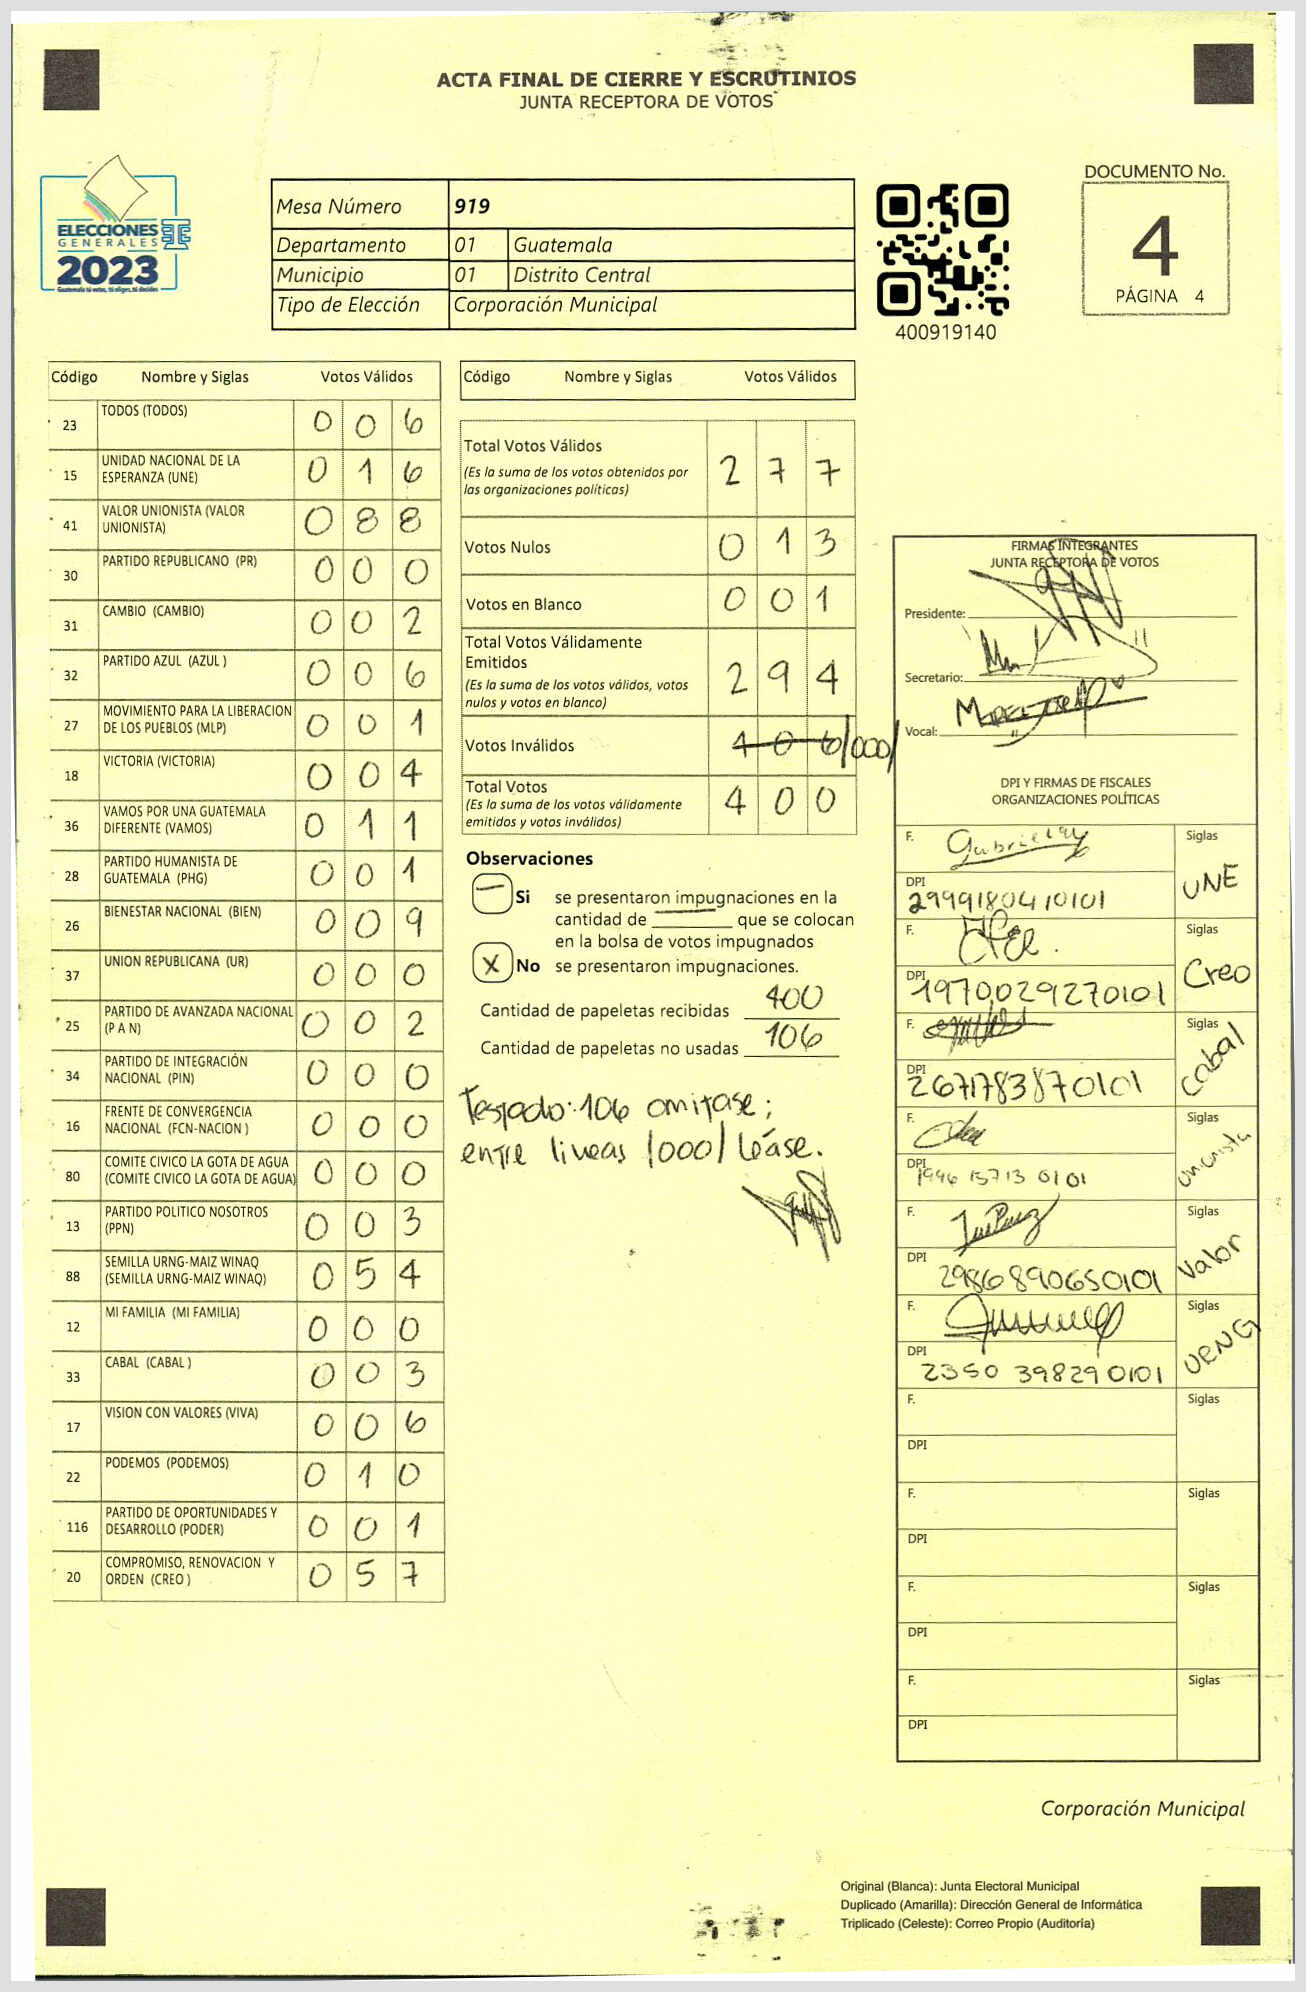 ACTA FINAL DE CIERRE Y ESCRUTINIOS
JUNTA RECEPTORA DE VOTOS
ELECCIONES
GENERALES
2023
Guatemala tú votas, tú eliges, tú decides
Mesa Número 919
Departamento 01 Guatemala
Municipio 01 Distrito Central
Tipo de Elección Corporación Municipal
400919140
DOCUMENTO No.
4
PÁGINA 4
Código Nombre y Siglas Votos Válidos
23 TODOS (TODOS) 0 0 6
15 UNIDAD NACIONAL DE LA ESPERANZA (UNE) 0 1 6
41 VALOR UNIONISTA (VALOR UNIONISTA) 0 8 8
30 PARTIDO REPUBLICANO (PR) 0 0 0
31 CAMBIO (CAMBIO) 0 0 2
32 PARTIDO AZUL (AZUL ) 0 0 6
27 MOVIMIENTO PARA LA LIBERACION DE LOS PUEBLOS (MLP) 0 0 1
18 VICTORIA (VICTORIA) 0 0 4
36 VAMOS POR UNA GUATEMALA DIFERENTE (VAMOS) 0 1 1
28 PARTIDO HUMANISTA DE GUATEMALA (PHG) 0 0 1
26 BIENESTAR NACIONAL (BIEN) 0 0 9
37 UNION REPUBLICANA (UR) 0 0 0
25 PARTIDO DE AVANZADA NACIONAL (P A N) 0 0 2
34 PARTIDO DE INTEGRACIÓN NACIONAL (PIN) 0 0 0
16 FRENTE DE CONVERGENCIA NACIONAL (FCN-NACION ) 0 0 0
80 COMITE CIVICO LA GOTA DE AGUA (COMITE CIVICO LA GOTA DE AGUA) 0 0 0
13 PARTIDO POLITICO NOSOTROS (PPN) 0 0 3
88 SEMILLA URNG-MAIZ WINAQ (SEMILLA URNG-MAIZ WINAQ) 0 5 4
12 MI FAMILIA (MI FAMILIA) 0 0 0
33 CABAL (CABAL ) 0 0 3
17 VISION CON VALORES (VIVA) 0 0 6
22 PODEMOS (PODEMOS) 0 1 0
116 PARTIDO DE OPORTUNIDADES Y DESARROLLO (PODER) 0 0 1
20 COMPROMISO, RENOVACION Y ORDEN (CREO ) 0 5 7
Código Nombre y Siglas Votos Válidos
Total Votos Válidos 2 7 7
(Es la suma de los votos obtenidos por
las organizaciones políticas)
Votos Nulos 0 1 3
Votos en Blanco 0 0 1
Total Votos Válidamente
Emitidos 2 9 4
(Es la suma de los votos válidos, votos
nulos y votos en blanco)
Votos Inválidos /000/
Total Votos 4 0 0
(Es la suma de los votos válidamente
emitidos y votos inválidos)
Observaciones
Si se presentaron impugnaciones en la
cantidad de ________ que se colocan
en la bolsa de votos impugnados
X No se presentaron impugnaciones.
Cantidad de papeletas recibidas 400
Cantidad de papeletas no usadas 106
Testado: 106 omitase;
entre lineas /000/ léase.
FIRMAS INTEGRANTES
JUNTA RECEPTORA DE VOTOS
Presidente:
Secretario:
Vocal:
DPI Y FIRMAS DE FISCALES
ORGANIZACIONES POLÍTICAS
F. Siglas UNE
DPI 2999180410101
F. Siglas Creo
DPI 1970029270101
F. Siglas Cabal
DPI 2671783870101
F. Siglas Unionista
DPI 1996 15713 0101
F. Siglas Valor
DPI 2986890650101
F. Siglas URNG
DPI 2350 398290101
F. Siglas
DPI
F. Siglas
DPI
F. Siglas
DPI
F. Siglas
DPI
Corporación Municipal
Original (Blanca): Junta Electoral Municipal
Duplicado (Amarilla): Dirección General de Informática
Triplicado (Celeste): Correo Propio (Auditoría)